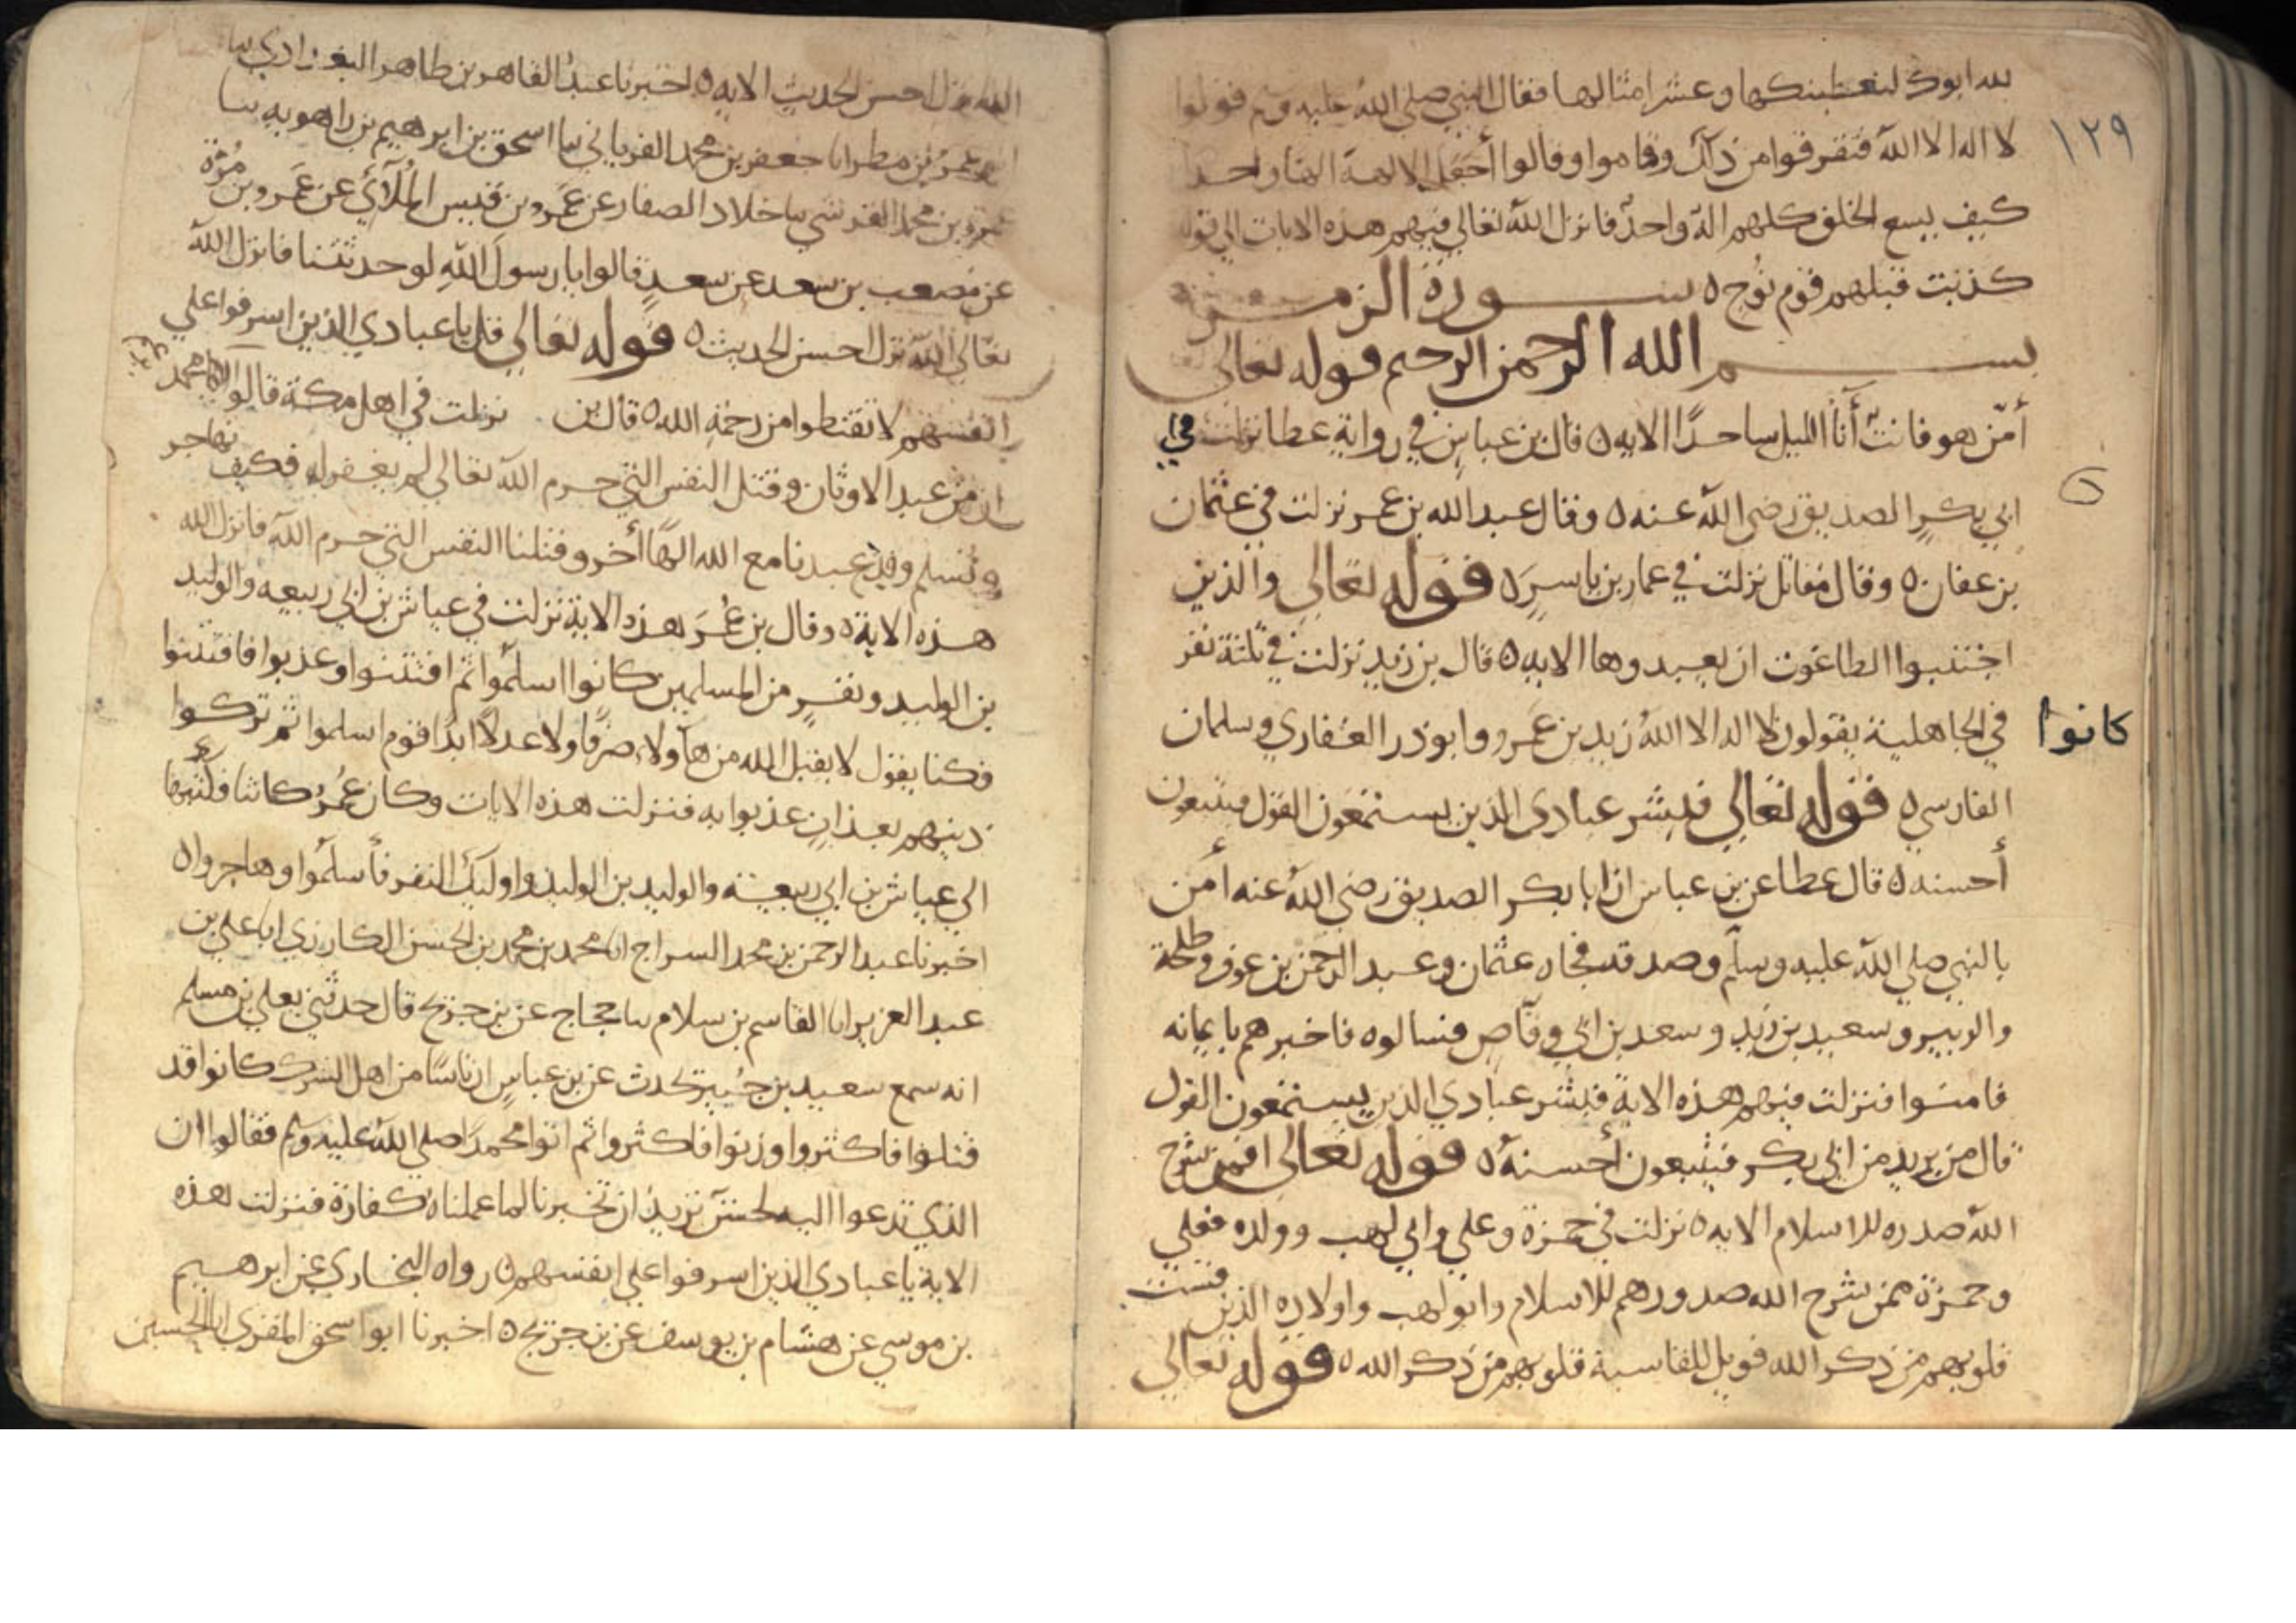 ١٢٩
لله ابوك لنعطينكها وعشرا مثالها فقال النبي صلى الله عليه وسلم قولوا
لا اله الا الله فنفروا من ذلك وقاموا وقالوا أجعل الالهة الها واحدا
كيف يسع الخلق كلهم اله واحد فانزل الله تعالى فيهم هذه الايات الى قوله
كذبت قبلهم قوم نوح ه سورة الزمر
بسم الله الرحمن الرحيم قوله تعالى
أمّن هو قانت أنآ الليل ساجدًا الايه ه قال بن عباس في رواية عطا نزلت في
ابي بكر الصديق رضي الله عنه ه وقال عبد الله بن عمر نزلت في عثمان
بن عفان ه وقال مقاتل نزلت في عمار بن ياسر ه قوله تعالى والذين
اجتنبوا الطاغوت ان يعبدوها الايه ه قال بن زيد نزلت في ثلثة نفر
كانوا
في الجاهلية يقولون لا اله الا الله زيد بن عمرو وابوذر الغفاري وسلمان
الفارسي ه قوله تعالى فبشر عبادي الذين يستمعون القول فيتبعون
أحسنه ه قال عطا عن بن عباس ان ابا بكر الصديق رضي الله عنه أمن
بالنبي صلى الله عليه وسلم وصدقه فجاه عثمان وعبد الرحمن بن عوف وطلحة
والزبير وسعيد بن زيد وسعد بن ابي وقاص فسالوه فاخبرهم بايمانه
فامنوا فنزلت فيهم هذه الاية فبشر عبادي الذين يستمعون القول
قال من يريد من ابي بكر فيتبعون أحسنه ه قوله تعالى افمن شرح
الله صدره للاسلام الايه ه نزلت في حمزة وعلي وابي لهب وولده فعلي
وحمزة ممن شرح الله صدورهم للاسلام وابو لهب واولاده الذين قست
قلوبهم من ذكر الله فويل للقاسية قلوبهم من ذكر الله ه قوله تعالى
الله نزل احسن الحديث الايه ه اخبرنا عبد القاهر بن طاهر البغدادي نبا
عمرو بن مطر انا جعفر بن محمد الفريابي نبا اسحق بن ابرهيم بن راهويه نبا
عمرو بن محمد القرشي نبا خلاد الصفار عن عَمرو بن قيس المُلآئي عن عَمرو بن مُرّة
عن مصعب بن سعد عن سعدٍ قالوا يا رسول الله لو حدثتنا فانزل الله
تعالى الله نزل احسن الحديث ه قوله تعالى قل يا عبادي الذين اسرفوا على
انفسهم لا تقنطوا من رحمة الله ه قال بن نزلت في اهل مكة قالوا
ان من عبد الاوثان وقتل النفس التي حرم الله تعالى لم يغفر له فكيف نهاجر
ونُسلم وقد عبدنا مع الله الهًا أخر وقتلنا النفس التي حرم الله فانزل الله
هذه الاية ه وقال بن عُمَر هذه الاية نزلت في عياش بن ابي ربيعه والوليد
بن الوليد ونفرٍ من المسلمين كانوا اسلموا ثم افتتنوا وعذبوا فافتتنوا
فكنا نقول لا يقبل الله من هآولاء صرفًا ولا عدلاً ابدًا قوم اسلموا ثم تركوا
دينهم بعذابٍ عذبوا به فنزلت هذه الايات وكان عُمَرُ كاتبا فكتبها
الى عياش بن ابي ربيعة والوليد بن الوليد واوليك النفر فأسلمُوا وهاجروا ه
اخبرنا عبد الرحمن بن محمد السراج انا محمد بن محمد بن الحسن الكارزي انا علي بن
عبد العزيز انا القاسم بن سلام نبا حجاج عن بن جريج قال حدثني يعلي بن مسلم
انه سمع سعيد بن جُبير يحدث عن بن عباسٍ ان ناسًا من اهل الشرك كانوا قد
قتلوا فاكثروا وزنوا فاكثروا ثم اتوا محمدًا صلى الله عليه وسلم فقالوا ان
الذي تدعوا اليه لحسن ان تخبرنا لما عملناه كفارة فنزلت هذه
الاية يا عبادي الذين اسرفوا على انفسهم ه رواه البخاري عن ابرهيم
بن موسي عن هشام بن يوسف عن بن جريج ه اخبرنا ابوا سحق المقري ابا الحسين